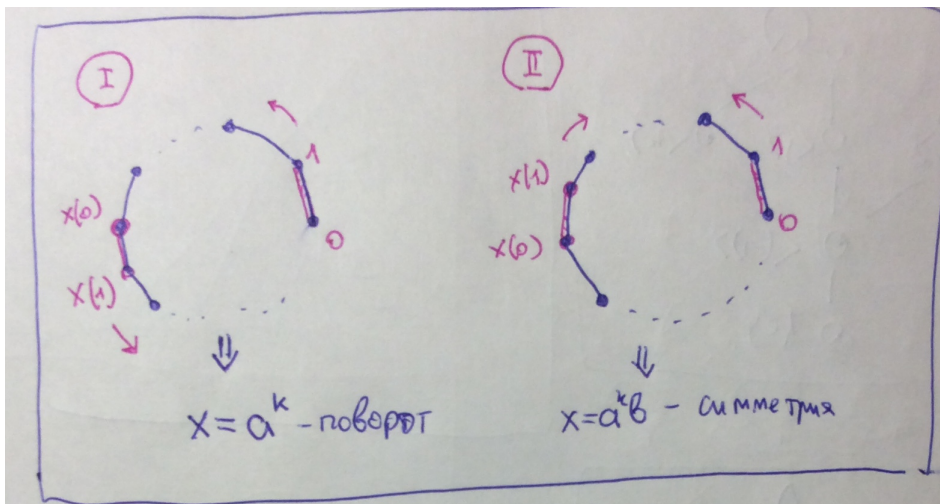 I
1
x(0)
0
x(1)
⇓
x = a^k - поворот
II
1
x(1)
0
x(0)
⇓
x = a^k b - симметрия